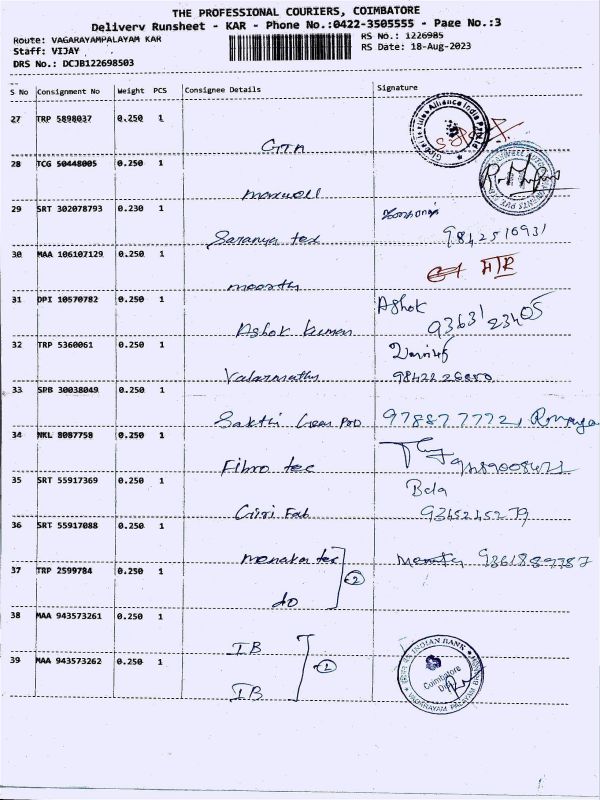 THE PROFESSIONAL COURIERS, COIMBATORE
Delivery Runsheet - KAR - Phone No.:0422-3505555 - Page No.:3
Route: VAGARAYAMPALAYAM KAR
Staff: VIJAY
DRS No.: DCJB122698503
RS No.: 1226985
RS Date: 18-Aug-2023
S No Consignment No Weight PCS Consignee Details Signature
27 TRP 5898037 0.250 1
GTA
28 TCG 50448005 0.250 1
Maxwell
29 SRT 302078793 0.230 1
Saranya tex 9842516931
30 MAA 106107129 0.250 1
moorthy
31 DPI 10570782 0.250 1 Ashok
Ashok kumar 93631 23405
32 TRP 5360061 0.250 1
Valarmathy
33 SPB 30038049 0.250 1
Sakthi
34 NKL 8087758 0.250 1
Fibro tec
35 SRT 55917369 0.250 1 Bela
Giri Fab 9345245279
36 SRT 55917088 0.250 1
Menaka tex
37 TRP 2599784 0.250 1 2
do
38 MAA 943573261 0.250 1
IB
39 MAA 943573262 0.250 1
IB
INDIAN BANK
Coimbatore